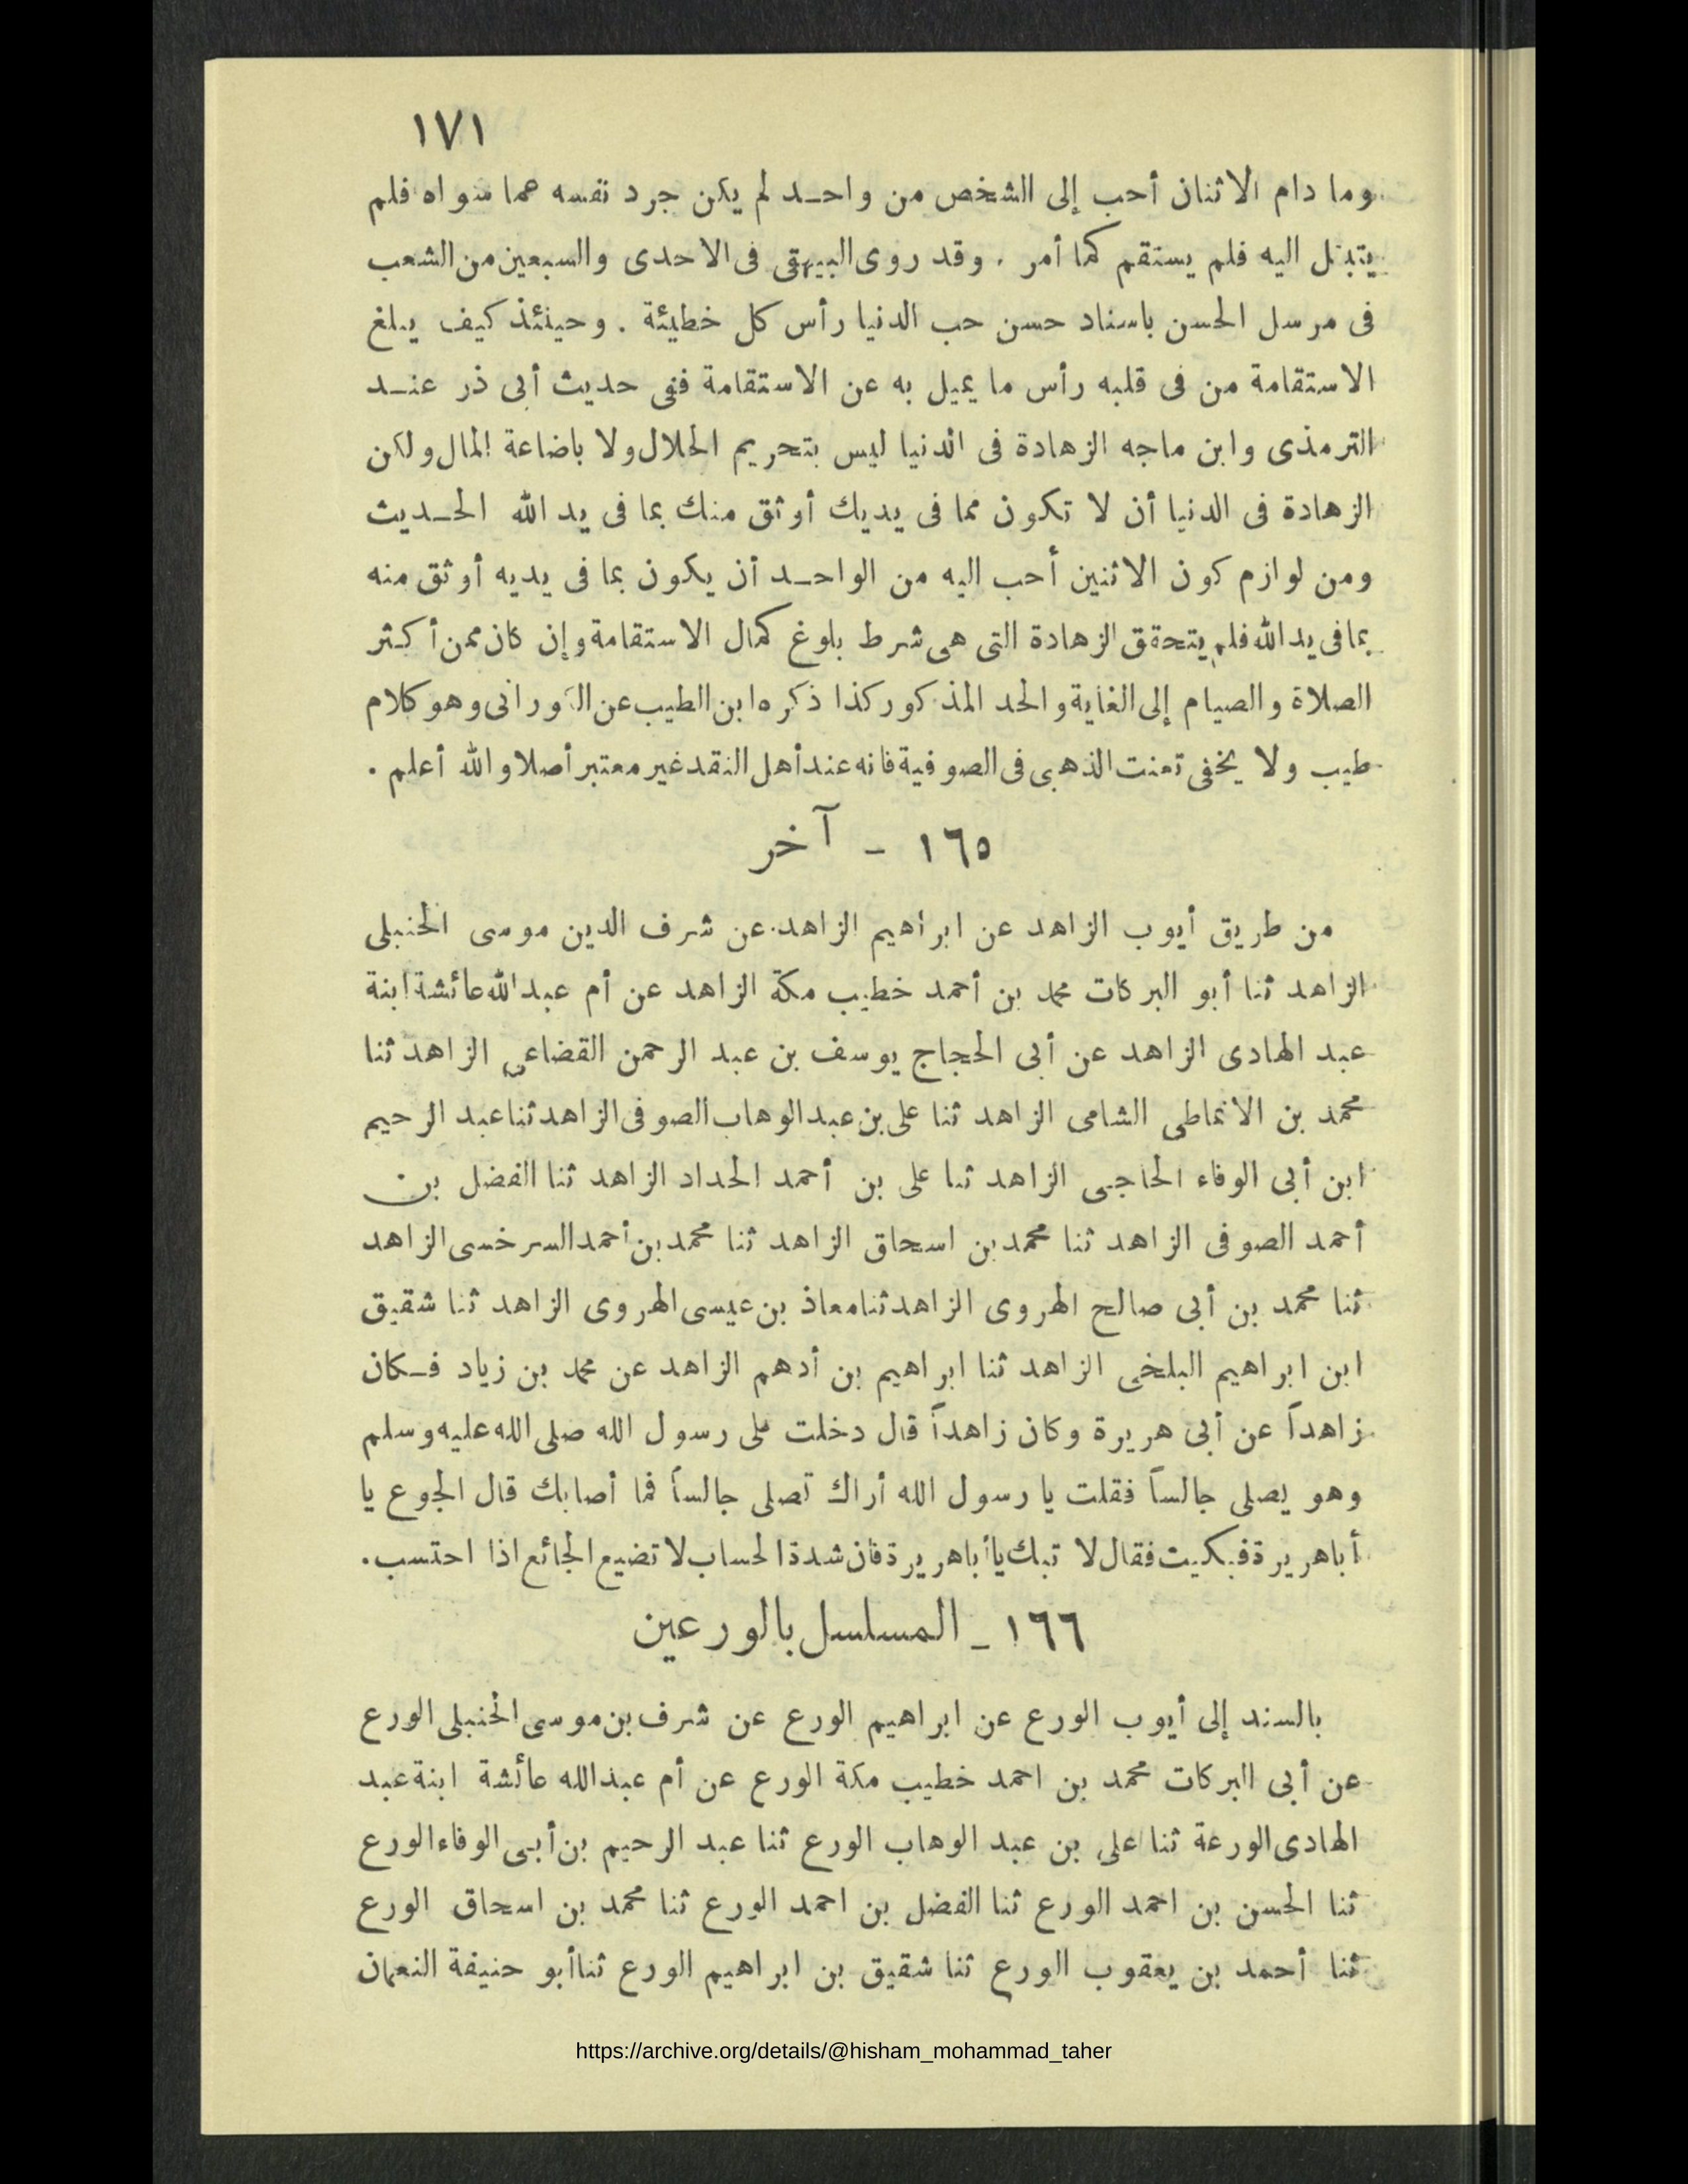 ١٧١
وما دام الاثنان أحب إلى الشخص من واحـد لم يكن جرد نفسه عما سواه فلم
يتبتل اليه فلم يستقم كما أمر . وقد روى البيهقى فى الاحدى والسبعين من الشعب
فى مرسل الحسن باسناد حسن حب الدنيا رأس كل خطيئة . وحينئذ كيف يبلغ
الاستقامة من فى قلبه رأس ما يميل به عن الاستقامة ففى حديث أبى ذر عنـد
الترمذى وابن ماجه الزهادة فى الدنيا ليس بتحريم الحلال ولا باضاعة المال ولكن
الزهادة فى الدنيا أن لا تكون مما فى يديك أوثق منك بما فى يد الله الحـديث
ومن لوازم كون الاثنين أحب اليه من الواحـد أن يكون بما فى يديه أوثق منه
بما فى يد الله فلم يتحقق الزهادة التى هى شرط بلوغ كمال الاستقامة وإن كان ممن أكثر
الصلاة والصيام إلى الغاية والحد المذكور كذا ذكره ابن الطيب عن الكورانى وهو كلام
طيب ولا يخفى تعنت الذهبى فى الصوفية فانه عند أهل النقد غير معتبر أصلا والله أعلم .
١٦٥ - آخر
من طريق أيوب الزاهد عن ابراهيم الزاهد عن شرف الدين موسى الحنبلى
الزاهد ثنا أبو البركات محمد بن أحمد خطيب مكة الزاهد عن أم عبد الله عائشة ابنة
عبد الهادى الزاهد عن أبى الحجاج يوسف بن عبد الرحمن القضاعى الزاهد ثنا
محمد بن الانماطى الشامى الزاهد ثنا على بن عبد الوهاب الصوفى الزاهد ثنا عبد الرحيم
ابن أبى الوفاء الحاجى الزاهد ثنا على بن أحمد الحداد الزاهد ثنا الفضل بن
أحمد الصوفى الزاهد ثنا محمد بن اسحاق الزاهد ثنا محمد بن أحمد السرخسى الزاهد
ثنا محمد بن أبى صالح الهروى الزاهد ثنا معاذ بن عيسى الهروى الزاهد ثنا شقيق
ابن ابراهيم البلخى الزاهد ثنا ابراهيم بن أدهم الزاهد عن محمد بن زياد فـكان
زاهداً عن أبى هريرة وكان زاهداً قال دخلت على رسول الله صلى الله عليه وسلم
وهو يصلى جالساً فقلت يا رسول الله أراك تصلى جالساً فما أصابك قال الجوع يا
أبا هريرة فبكيت فقال لا تبك يا أبا هريرة فان شدة الحساب لا تضيع الجائع اذا احتسب.
١٦٦ ـ المسلسل بالورعين
بالسند إلى أيوب الورع عن ابراهيم الورع عن شرف بن موسى الحنبلى الورع
عن أبى البركات محمد بن احمد خطيب مكة الورع عن أم عبد الله عائشة ابنة عبد
الهادى الورعة ثنا على بن عبد الوهاب الورع ثنا عبد الرحيم بن أبى الوفاء الورع
ثنا الحسن بن احمد الورع ثنا الفضل بن احمد الورع ثنا محمد بن اسحاق الورع
ثنا أحمد بن يعقوب الورع ثنا شقيق بن ابراهيم الورع ثنا أبو حنيفة النعمان
https://archive.org/details/@hisham_mohammad_taher